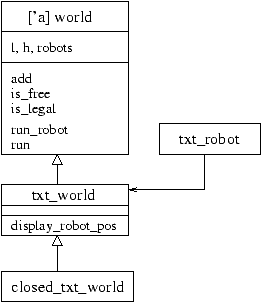 ['a] world
l, h, robots
add
is_free
is_legal
run_robot
run
txt_robot
txt_world
display_robot_pos
closed_txt_world